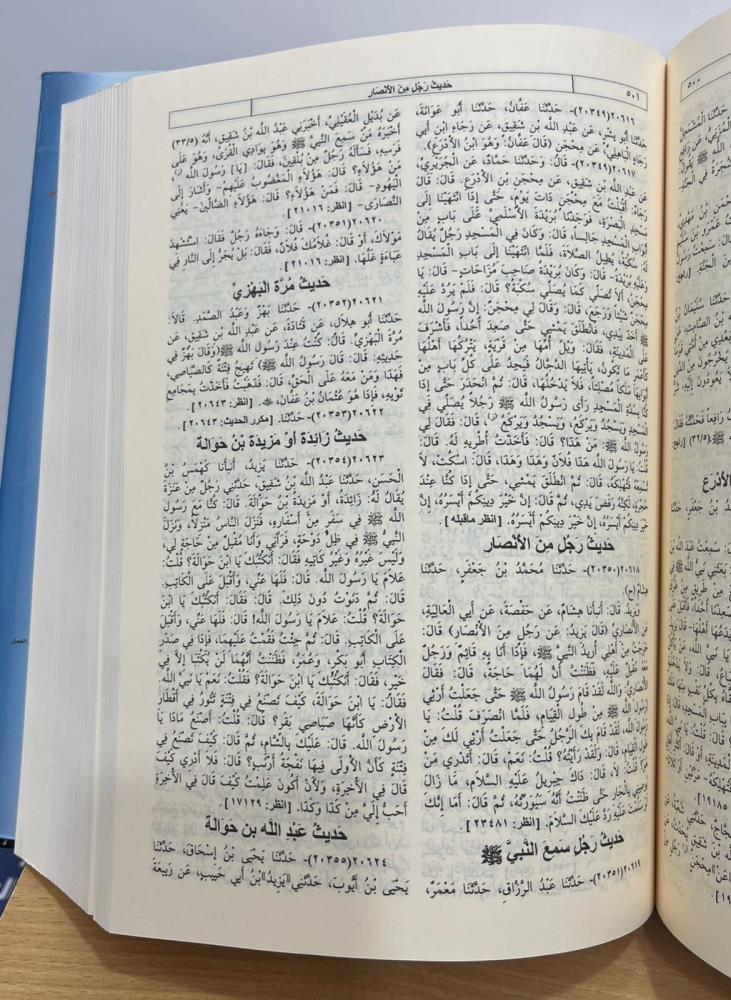 ٥٠١
حَديثُ رَجُل مِنَ الأَنْصَار
٢٠٦١٦(٢٠٣٤٩)- حَدَّثَنَا عَفَّانُ، حَدَّثَنَا أَبُو عَوَانَةَ،
حَدَّثَنَا أَبُو بِشْرٍ، عَنْ عَبْدِ اللَّه بْنِ شَقِيقٍ، عَن رَجَاءِ ابْنِ أَبِي
رَجَاءٍ الْبَاهِلِيِّ، عَن مِحْجَنٍ (قَالَ عَفَّانُ: وَهُوَ ابْنُ الأَدْرَعِ).
٢٠٦١٧(٢٠٣٤٩)- قَالَ: وَحَدَّثَنَا حَمَّادٌ، عَن الْجُرَيْرِيِّ،
عَن عَبْدِ اللَّهِ بْنِ شَقِيقٍ، عَن مِحْجَنِ بْنِ الأَدْرَعِ. قَالَ: قَالَ
رَجَاءٌ: أَقْبَلْتُ مَعَ مِحْجَنٍ ذَاتَ يَوْمٍ، حَتَّى إِذَا انْتَهَيْنَا إِلَى
مَسْجِدِ الْبَصْرَةِ، فَوَجَدْنَا بُرَيْدَةَ الأَسْلَمِيَّ عَلَى بَابٍ مِنْ
أَبْوَابِ الْمَسْجِدِ جَالِساً، قَالَ: وَكَانَ فِي الْمَسْجِدِ رَجُلٌ يُقَالُ
لَهُ: سُكْبَةُ، يُطِيلُ الصَّلاَةَ، فَلَمَّا انْتَهَيْنَا إِلَى بَابِ الْمَسْجِدِ
وَعَلَيْهِ بُرَيْدَةُ- قَالَ: وَكَانَ بُرَيْدَةُ صَاحِبَ مُزَاحَاتٍ- قَالَ: يَا
مِحْجَنُ، أَلاَ تُصَلِّي كَمَا يُصَلِّي سُكْبَةُ؟ قَالَ: فَلَمْ يَرُدَّ عَلَيْهِ
مِحْجَنٌ شَيْئاً وَرَجَعَ، قَالَ: وَقَالَ لِي مِحْجَنٌ: إِنَّ رَسُولَ اللَّه
ﷺ أَخَذَ بِيَدِي، فَانْطَلَقَ يَمْشِي حَتَّى صَعِدَ أُحُداً، فَأَشْرَفَ
عَلَى الْمَدِينَةِ، فَقَالَ: وَيْلُ أُمِّهَا مِنْ قَرْيَةٍ، يَتْرُكُهَا أَهْلُهَا
كَأَعْمَرِ مَا تَكُونُ، يَأْتِيهَا الدَّجَّالُ فَيَجِدُ عَلَى كُلِّ بَابٍ مِنْ
أَبْوَابِهَا مَلَكاً مُصْلِتاً، فَلاَ يَدْخُلُهَا، قَالَ: ثُمَّ انْحَدَرَ حَتَّى إِذَا
كُنَّا بِسُدَّةِ الْمَسْجِدِ رَأَى رَسُولُ اللَّهِ ﷺ رَجُلاً يُصَلِّي فِي
الْمَسْجِدِ وَيَسْجُدُ وَيَرْكَعُ، وَيَسْجُدُ وَيَرْكَعُ، قَالَ: فَقَالَ لِي
رَسُولُ اللَّهِ ﷺ: مَنْ هَذَا؟ قَالَ: فَأَخَذْتُ أُطْرِيهِ لَهُ. قَالَ:
قُلْتُ: يَا رَسُولَ اللَّه هَذَا فُلاَنٌ وَهَذَا وَهَذَا، قَالَ: اسْكُتْ، لاَ
تُسْمِعْهُ فَتُهْلِكَهُ، قَالَ: ثُمَّ انْطَلَقَ يَمْشِي، حَتَّى إِذَا كُنَّا عِنْدَ
حُجْرَةٍ، لَكِنَّهُ رَفَضَ يَدِي، ثُمَّ قَالَ: إِنَّ خَيْرَ دِينِكُمْ أَيْسَرُهُ، إِنَّ
خَيْرَ دِينِكُمْ أَيْسَرُهُ، إِنَّ خَيْرَ دِينِكُمْ أَيْسَرُهُ. [انظر ماقبله].
حَديثُ رَجُل مِنَ الأَنْصَار
٢٠٦١٨(٢٠٣٥٠)- حَدَّثَنَا مُحَمَّدُ بْنُ جَعْفَرٍ، حَدَّثَنَا
هِشَامٌ (ح).
وَيَزِيدُ. قَالَ: أَنبأنا هِشَامٌ، عَن حَفْصَةَ، عَن أَبِي الْعَالِيَةِ،
عَن الأَنْصَارِيِّ (قَالَ يَزِيدُ: عَن رَجُلٍ مِنَ الأَنْصَارِ) قَالَ:
خَرَجْتُ مِنْ أَهْلِي أُرِيدُ النَّبِيَّ ﷺ، فَإِذَا أَنَا بِهِ قَائِمٌ وَرَجُلٌ
مَعَهُ مُقْبِلٌ عَلَيْهِ، فَظَنَنْتُ أَنَّ لَهُمَا حَاجَةً، قَالَ: فَقَالَ
الأَنْصَارِيُّ: وَاللَّهِ لَقَدْ قَامَ رَسُولُ اللَّهِ ﷺ حَتَّى جَعَلْتُ أَرْثِي
لِرَسُولِ اللَّهِ ﷺ مِنْ طُولِ الْقِيَامِ، فَلَمَّا انْصَرَفَ قُلْتُ: يَا
رَسُولَ اللَّهِ، لَقَدْ قَامَ بِكَ الرَّجُلُ حَتَّى جَعَلْتُ أَرْثِي لَكَ مِنْ
طُولِ الْقِيَامِ، قَالَ: وَلَقَدْ رَأَيْتَهُ؟ قُلْتُ: نَعَمْ، قَالَ: أَتَدْرِي مَنْ
هُوَ؟ قُلْتُ: لاَ، قَالَ: ذَاكَ جِبْرِيلُ عَلَيْهِ السَّلاَمُ، مَا زَالَ
يُوصِينِي بِالْجَارِ حَتَّى ظَنَنْتُ أَنَّهُ سَيُوَرِّثُهُ، ثُمَّ قَالَ: أَمَا إِنَّكَ
لَوْ سَلَّمْتَ عَلَيْهِ رَدَّ عَلَيْكَ السَّلاَمَ. [انظر: ٢٣٤٨١].
حَديثُ رَجُل سَمعَ النَّبيَّ ﷺ
٢٠٦١٩(٢٠٣٥١)- حَدَّثَنَا عَبْدُ الرَّزَّاقِ، حَدَّثَنَا مَعْمَرٌ،
عَن بُدَيْلٍ الْعُقَيْلِيِّ، أَخْبَرَنِي عَبْدُ اللَّهِ بْنُ شَقِيقٍ، أَنَّهُ (٣٣/٥)
أَخْبَرَهُ مَنْ سَمِعَ النَّبِيَّ ﷺ وَهُوَ بِوَادِي الْقُرَى، وَهُوَ عَلَى
فَرَسِهِ، فَسَأَلَهُ رَجُلٌ مِنْ بُلْقِينَ، فَقَالَ: [يَا] رَسُولَ اللَّهِ،
مَنْ هَؤُلاَءِ؟ قَالَ: هَؤُلاَءِ الْمَغْضُوبُ عَلَيْهِمْ- وَأَشَارَ إِلَى
الْيَهُودِ- قَالَ: فَمَنْ هَؤُلاَءِ؟ قَالَ: هَؤُلاَءِ الضَّالِّينَ- يَعْنِي
النَّصَارَى-. [انظر: ٢١٠١٦].
٢٠٦٢٠(٢٠٣٥١)- قَالَ: وَجَاءَهُ رَجُلٌ فَقَالَ: اسْتُشْهِدَ
مَوْلاَكَ، أَوْ قَالَ: غُلاَمُكَ فُلاَنٌ، قَالَ: بَلْ يُجَرُّ إِلَى النَّارِ فِي
عَبَاءَةٍ غَلَّهَا. [انظر: ٢١٠١٦].
حَديثُ مُرَّةَ الْبَهْزِيِّ
٢٠٦٢١(٢٠٣٥٢)- حَدَّثَنَا بَهْزٌ وَعَبْدُ الصَّمَدِ. قَالاَ:
حَدَّثَنَا أَبُو هِلاَلٍ، عَن قَتَادَةَ، عَن عَبْدِ اللَّه بْنِ شَقِيقٍ، عَن
مُرَّةَ الْبَهْزِيِّ. قَالَ: كُنْتُ عِنْدَ رَسُولِ اللَّهِ ﷺ(وَقَالَ بَهْزٌ فِي
حَدِيثِهِ: قَالَ: قَالَ رَسُولُ اللَّه ﷺ) تَهِيجُ فِتْنَةٌ كَالصَّيَاصِي،
فَهَذَا وَمَنْ مَعَهُ عَلَى الْحَقِّ، قَالَ: فَذَهَبْتُ فَأَخَذْتُ بِمَجَامِعِ
ثَوْبِهِ، فَإِذَا هُوَ عُثْمَانُ بْنُ عَفَّانَ، ﷺ. [انظر: ٢٠٦٤٣].
٢٠٦٢٢(٢٠٣٥٣)- حَدَّثَنَا. [مكرر الحديث: ٢٠٦٤٣].
حَديثُ زَائدَةَ أوْ مَزيدَةَ بْنُ حَوَالَةَ
٢٠٦٢٣(٢٠٣٥٤)- حَدَّثَنَا يَزِيدُ، أنبأنا كَهْمَسُ بْنُ
الْحَسَنِ، حَدَّثَنَا عَبْدُ اللَّه بْنُ شَقِيقٍ، حَدَّثَنِي رَجُلٌ مِنْ عَنَزَةَ
يُقَالُ لَهُ: زَائِدَةُ، أَوْ مَزِيدَةُ بْنُ حَوَالَةَ. قَالَ: كُنَّا مَعَ رَسُولِ
اللَّهِ ﷺ فِي سَفَرٍ مِنْ أَسْفَارِهِ، فَنَزَلَ النَّاسُ مَنْزِلاً، وَنَزَلَ
النَّبِيُّ ﷺ فِي ظِلِّ دَوْحَةٍ، فَرَآنِي وَأَنَا مُقْبِلٌ مِنْ حَاجَةٍ لِي،
وَلَيْسَ غَيْرُهُ وَغَيْرُ كَاتِبِهِ فَقَالَ: أَنَكْتُبُكَ يَا ابْنَ حَوَالَةَ؟ قُلْتُ:
عَلاَمَ يَا رَسُولَ اللَّهِ. قَالَ: فَلَهَا عَنِّي، وَأَقْبَلَ عَلَى الْكَاتِبِ.
قَالَ: ثُمَّ دَنَوْتُ دُونَ ذَلِكَ. قَالَ: فَقَالَ: أَنَكْتُبُكَ يَا ابْنَ
حَوَالَةَ؟ قُلْتُ: عَلاَمَ يَا رَسُولَ اللَّه! قَالَ: فَلَهَا عَنِّي، وَأَقْبَلَ
عَلَى الْكَاتِبِ. قَالَ: ثُمَّ جِئْتُ فَقُمْتُ عَلَيْهِمَا، فَإِذَا فِي صَدْرِ
الْكِتَابِ أَبُو بَكْرٍ، وَعُمَرُ، فَظَنَنْتُ أَنَّهُمَا لَنْ يُكْتَبَا إِلاَّ فِي
خَيْرٍ، فَقَالَ: أَنَكْتُبُكَ يَا ابْنَ حَوَالَةَ؟ فَقُلْتُ: نَعَمْ يَا نَبِيَّ اللَّه.
فَقَالَ: يَا ابْنَ حَوَالَةَ، كَيْفَ تَصْنَعُ فِي فِتْنَةٍ تَثُورُ فِي أَقْطَارِ
الأَرْضِ كَأَنَّهَا صَيَاصِي بَقَرٍ؟ قَالَ: قُلْتُ: أَصْنَعُ مَاذَا يَا
رَسُولَ اللَّه. قَالَ: عَلَيْكَ بِالشَّامِ، ثُمَّ قَالَ: كَيْفَ تَصْنَعُ فِي
فِتْنَةٍ كَأَنَّ الأُولَى فِيهَا نَفْجَةُ أَرْنَبٍ؟ قَالَ: فَلاَ أَدْرِي كَيْفَ
قَالَ فِي الآخِرَةِ، وَلأَنْ أَكُونَ عَلِمْتُ كَيْفَ قَالَ فِي الآخِرَةِ
أَحَبُّ إِلَيَّ مِنْ كَذَا وَكَذَا. [انظر: ١٧١٢٩].
حَديثُ عَبْد اللَّه بن حَوَالَةَ
٢٠٦٢٤(٢٠٣٥٥)- حَدَّثَنَا يَحْيَى بْنُ إِسْحَاقَ، حَدَّثَنَا
يَحْيَى بْنُ أَيُّوبَ، حَدَّثَنِي«يَزِيدُ»بْنُ أَبِي حَبِيبٍ، عَن رَبِيعَةَ
٥٠٠